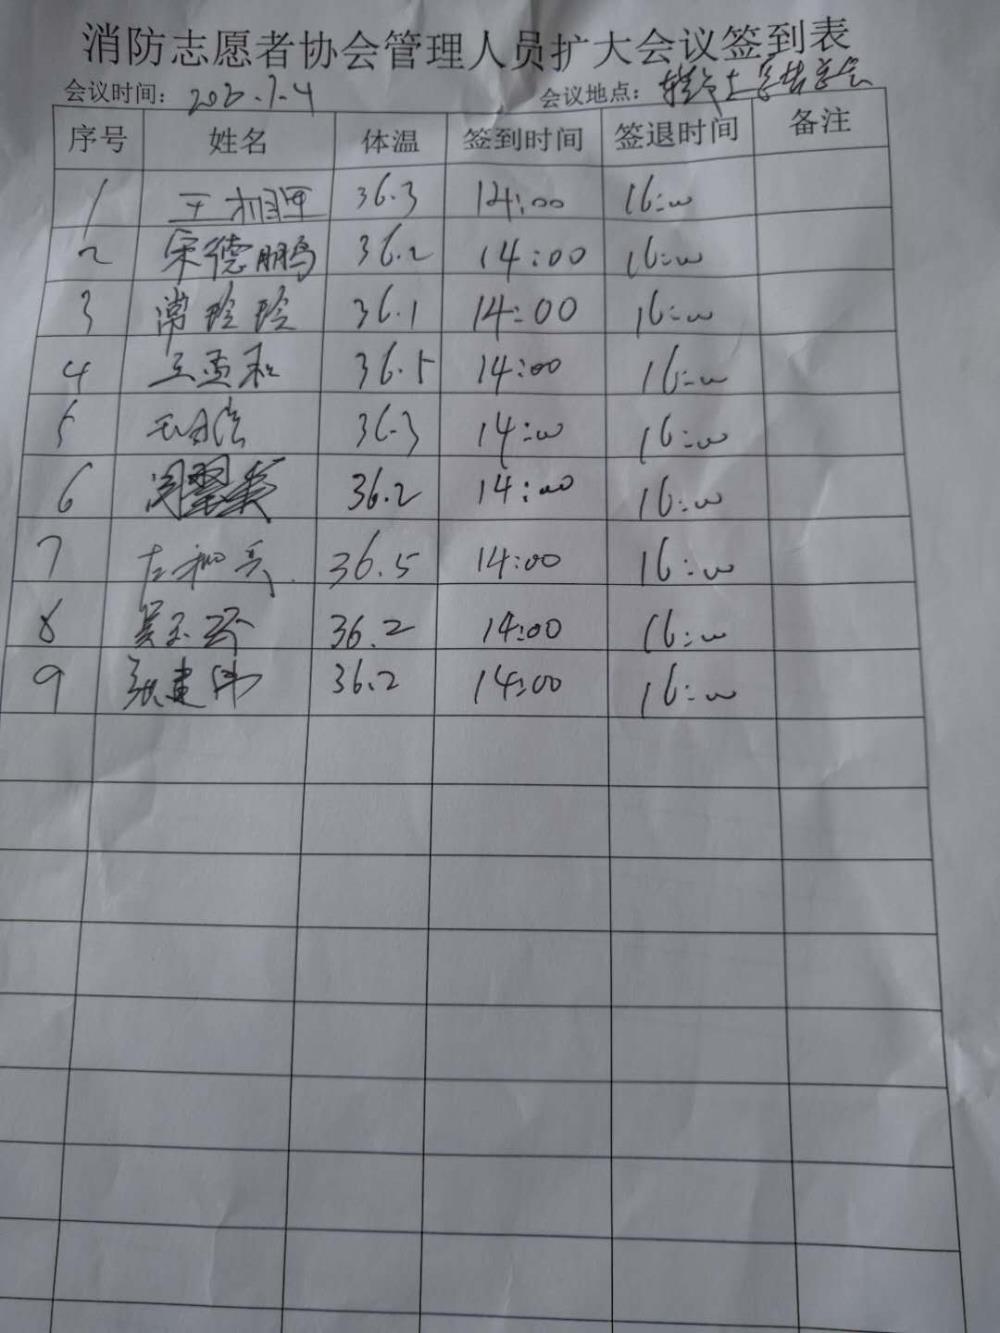 消防志愿者协会管理人员扩大会议签到表
会议时间： 会议地点：
序号 姓名 体温 签到时间 签退时间 备注
1 36.3 14:00 16:00
2 宋德鹏 36.2 14:00 16:00
3 常玲玲 36.1 14:00 16:00
4 36.5 14:00 16:00
5 36.3 14:00 16:00
6 36.2 14:00 16:00
7 36.5 14:00 16:00
8 36.2 14:00 16:00
9 张建伟 36.2 14:00 16:00